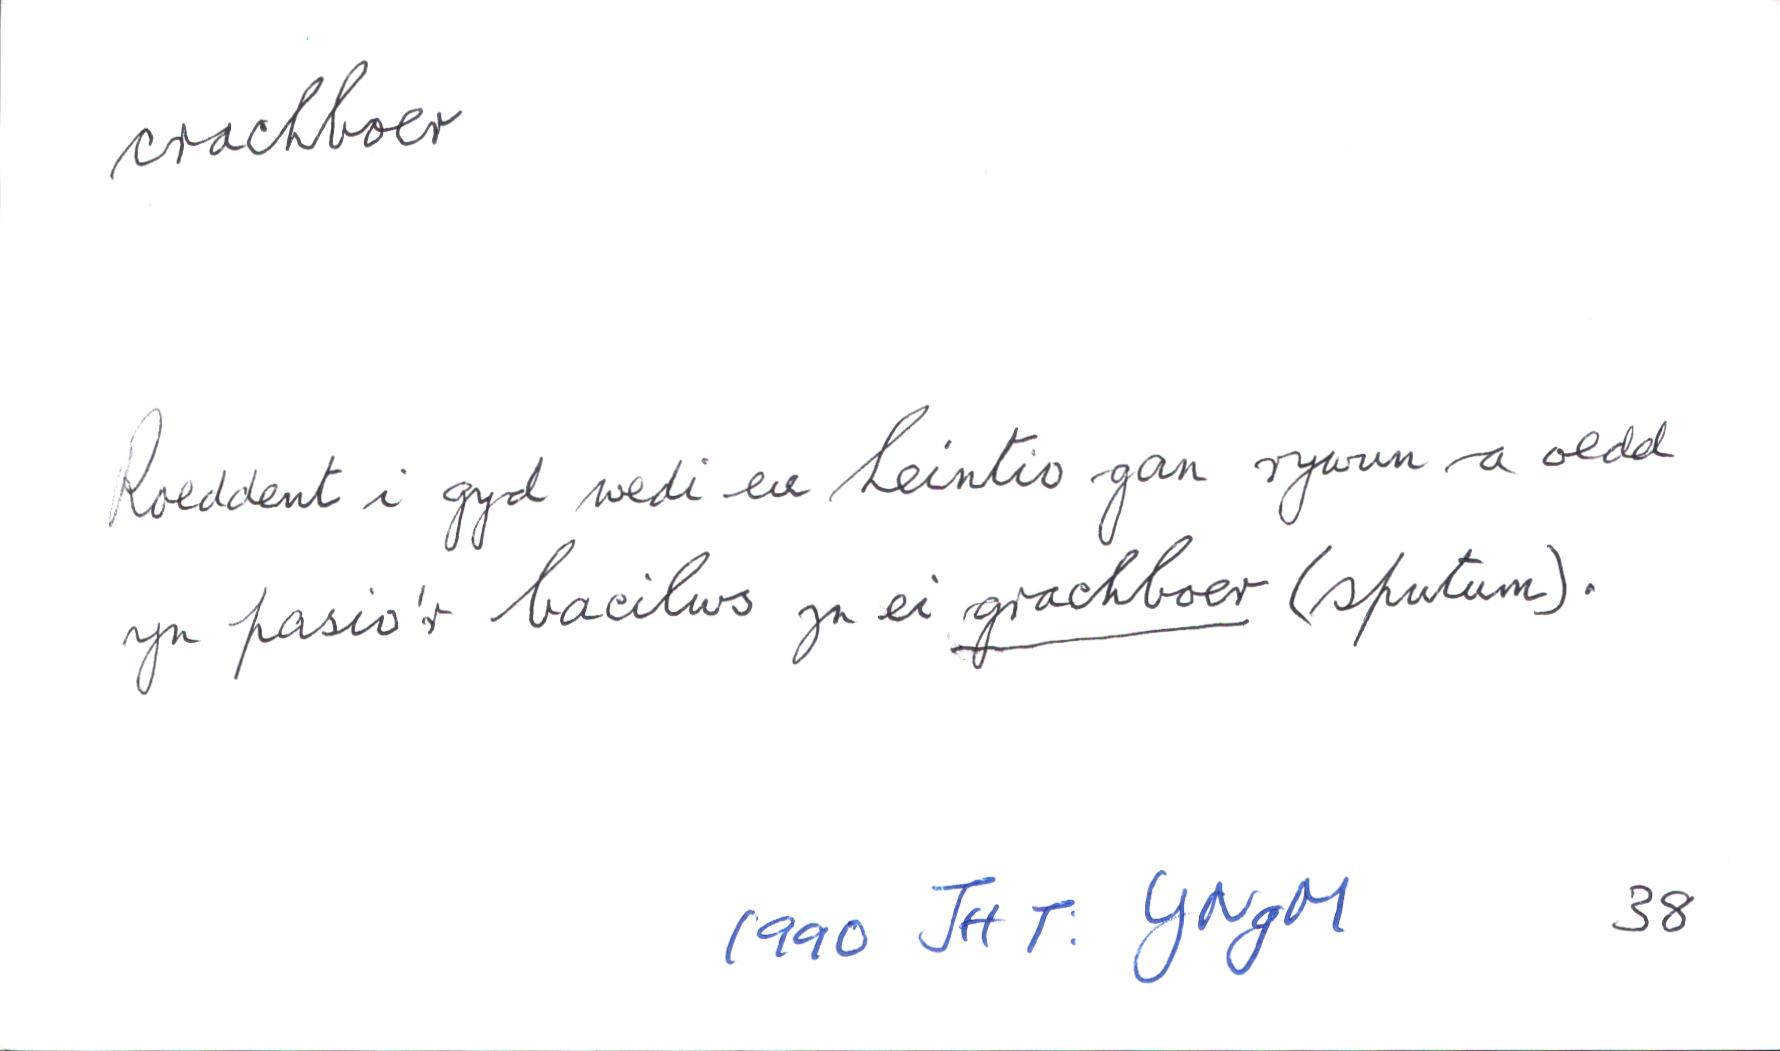 crachboer
Roeddent i gyd wedi eu heintio gan rywun a oedd
yn pasio'r bacilws yn ei grachboer (sputum).
1990 JHT: YNgM 38